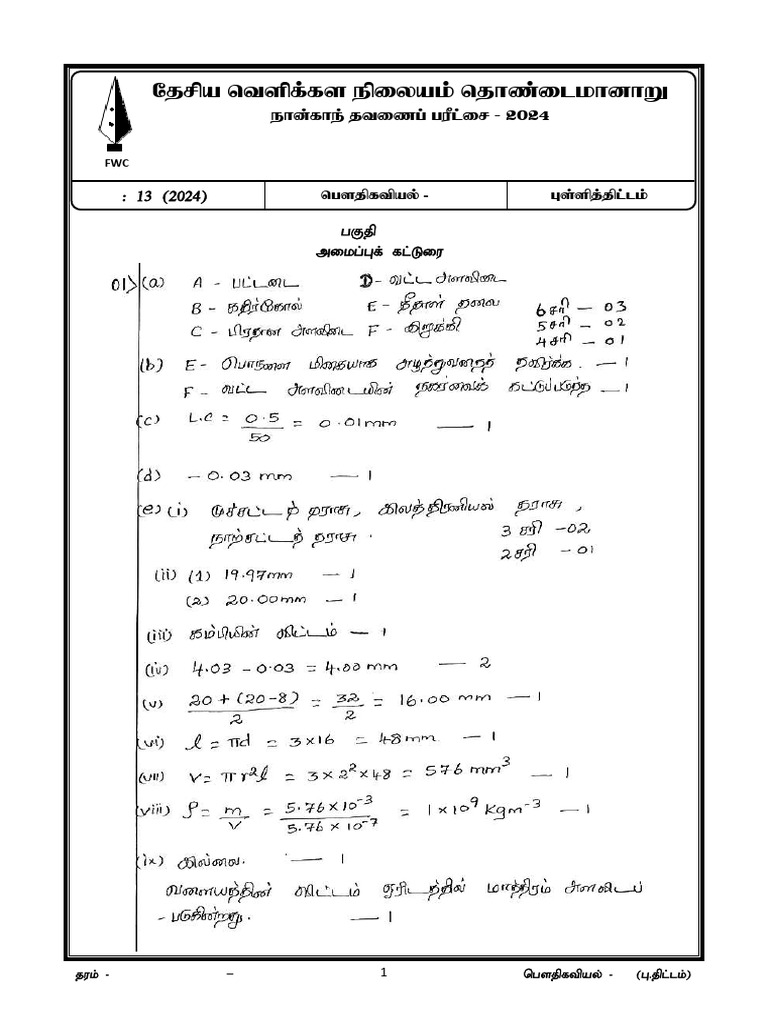 தேசிய வெளிக்கள நிலையம் தொண்டைமானாறு
நான்காந் தவணைப் பரீட்சை - 2024
FWC
: 13 (2024) பௌதிகவியல் - புள்ளித்திட்டம்
பகுதி
அமைப்புக் கட்டுரை
01> (a) A - பட்டடை D - வட்ட அளவிடை
B - கதிர்கோல் E - தீதான் தலை
C - பிரதான அளவிடை F - கிறுக்கி
6சரி - 03
5சரி - 02
4சரி - 01
(b) E - பொருளை மிகையாக அழுத்துவதைத் தவிர்க்க. — 1
F - வட்ட அளவிடையின் நகர்வைக் கட்டுப்படுத்த — 1
(c) L.C = 0.5/50 = 0.01mm — 1
(d) - 0.03 mm — 1
(e) (i) முச்சட்டத் தராசு, இலத்திரனியல் தராசு,
நாற்சட்டத் தராசு.
3 சரி - 02
2சரி - 01
(ii) (1) 19.97mm — 1
(2) 20.00mm — 1
(iii) கம்பியின் விட்டம் — 1
(iv) 4.03 - 0.03 = 4.00 mm — 2
(v) 20 + (20-8)/2 = 32/2 = 16.00 mm — 1
(vi) l = πd = 3×16 = 48mm — 1
(vii) V = πr²l = 3×2²×48 = 576 mm³ — 1
(viii) ρ = m/V = 5.76×10⁻³/5.76×10⁻⁷ = 1×10⁹ kgm⁻³ — 1
(ix) இல்லை. — 1
வளையத்தின் விட்டம் ஓரிடத்தில் மாத்திரம் அளவிடப்
- படுகின்றது. — 1
தரம் - – 1 பௌதிகவியல் - (பு.திட்டம்)